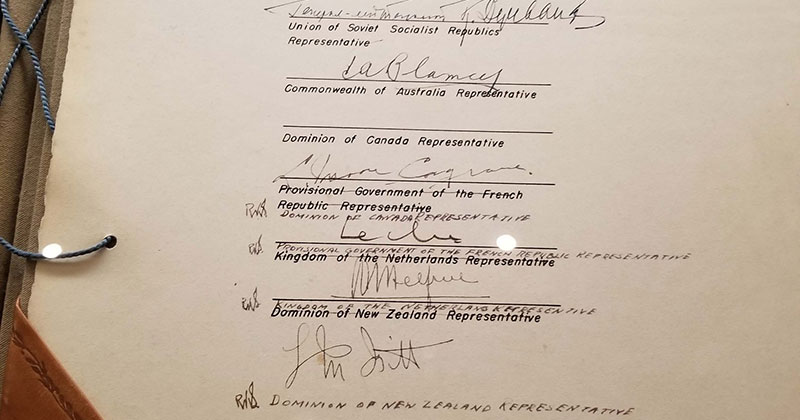 Генерал-лейтенант К. Деревянко
Union of Soviet Socialist Republics
Representative
T A Blamey
Commonwealth of Australia Representative
Dominion of Canada Representative
L Moore Cosgrave.
Provisional Government of the French
Republic Representative
DOMINION OF CANADA REPRESENTATIVE
Leclerc
PROVISIONAL GOVERNMENT OF THE FRENCH REPUBLIC REPRESENTATIVE
Kingdom of the Netherlands Representative
Helfrich
KINGDOM OF THE NETHERLAND REPRESENTATIVE
Dominion of New Zealand Representative
L M Isitt
DOMINION OF NEW ZEALAND REPRESENTATIVE